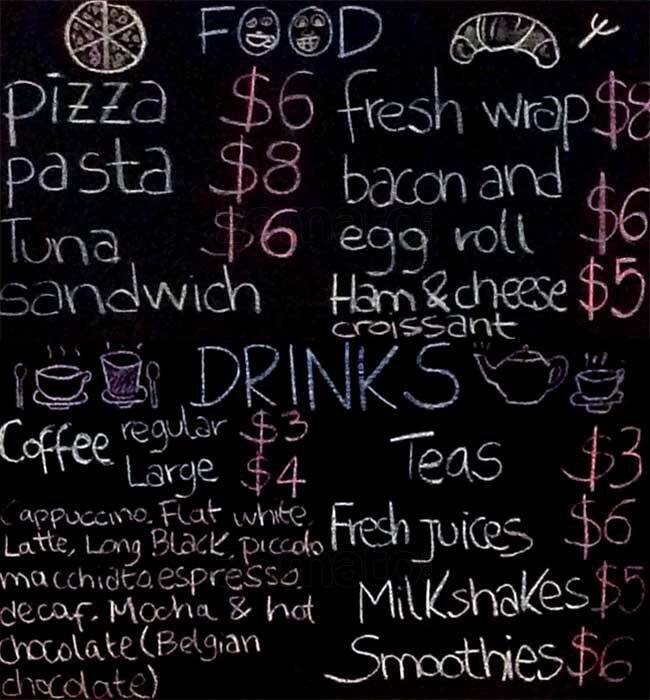 FOOD
pizza $6
pasta $8
Tuna $6
sandwich
fresh wrap $8
bacon and
egg roll $6
Ham & cheese $5
croissant
DRINKS
Coffee regular $3
Large $4
Cappuccino. Flat white,
Latte, Long Black, piccolo
macchiato.espresso.
decaf. Mocha & hot
chocolate (Belgian
chocolate)
Teas $3
Fresh juices $6
Milkshakes $5
Smoothies $6